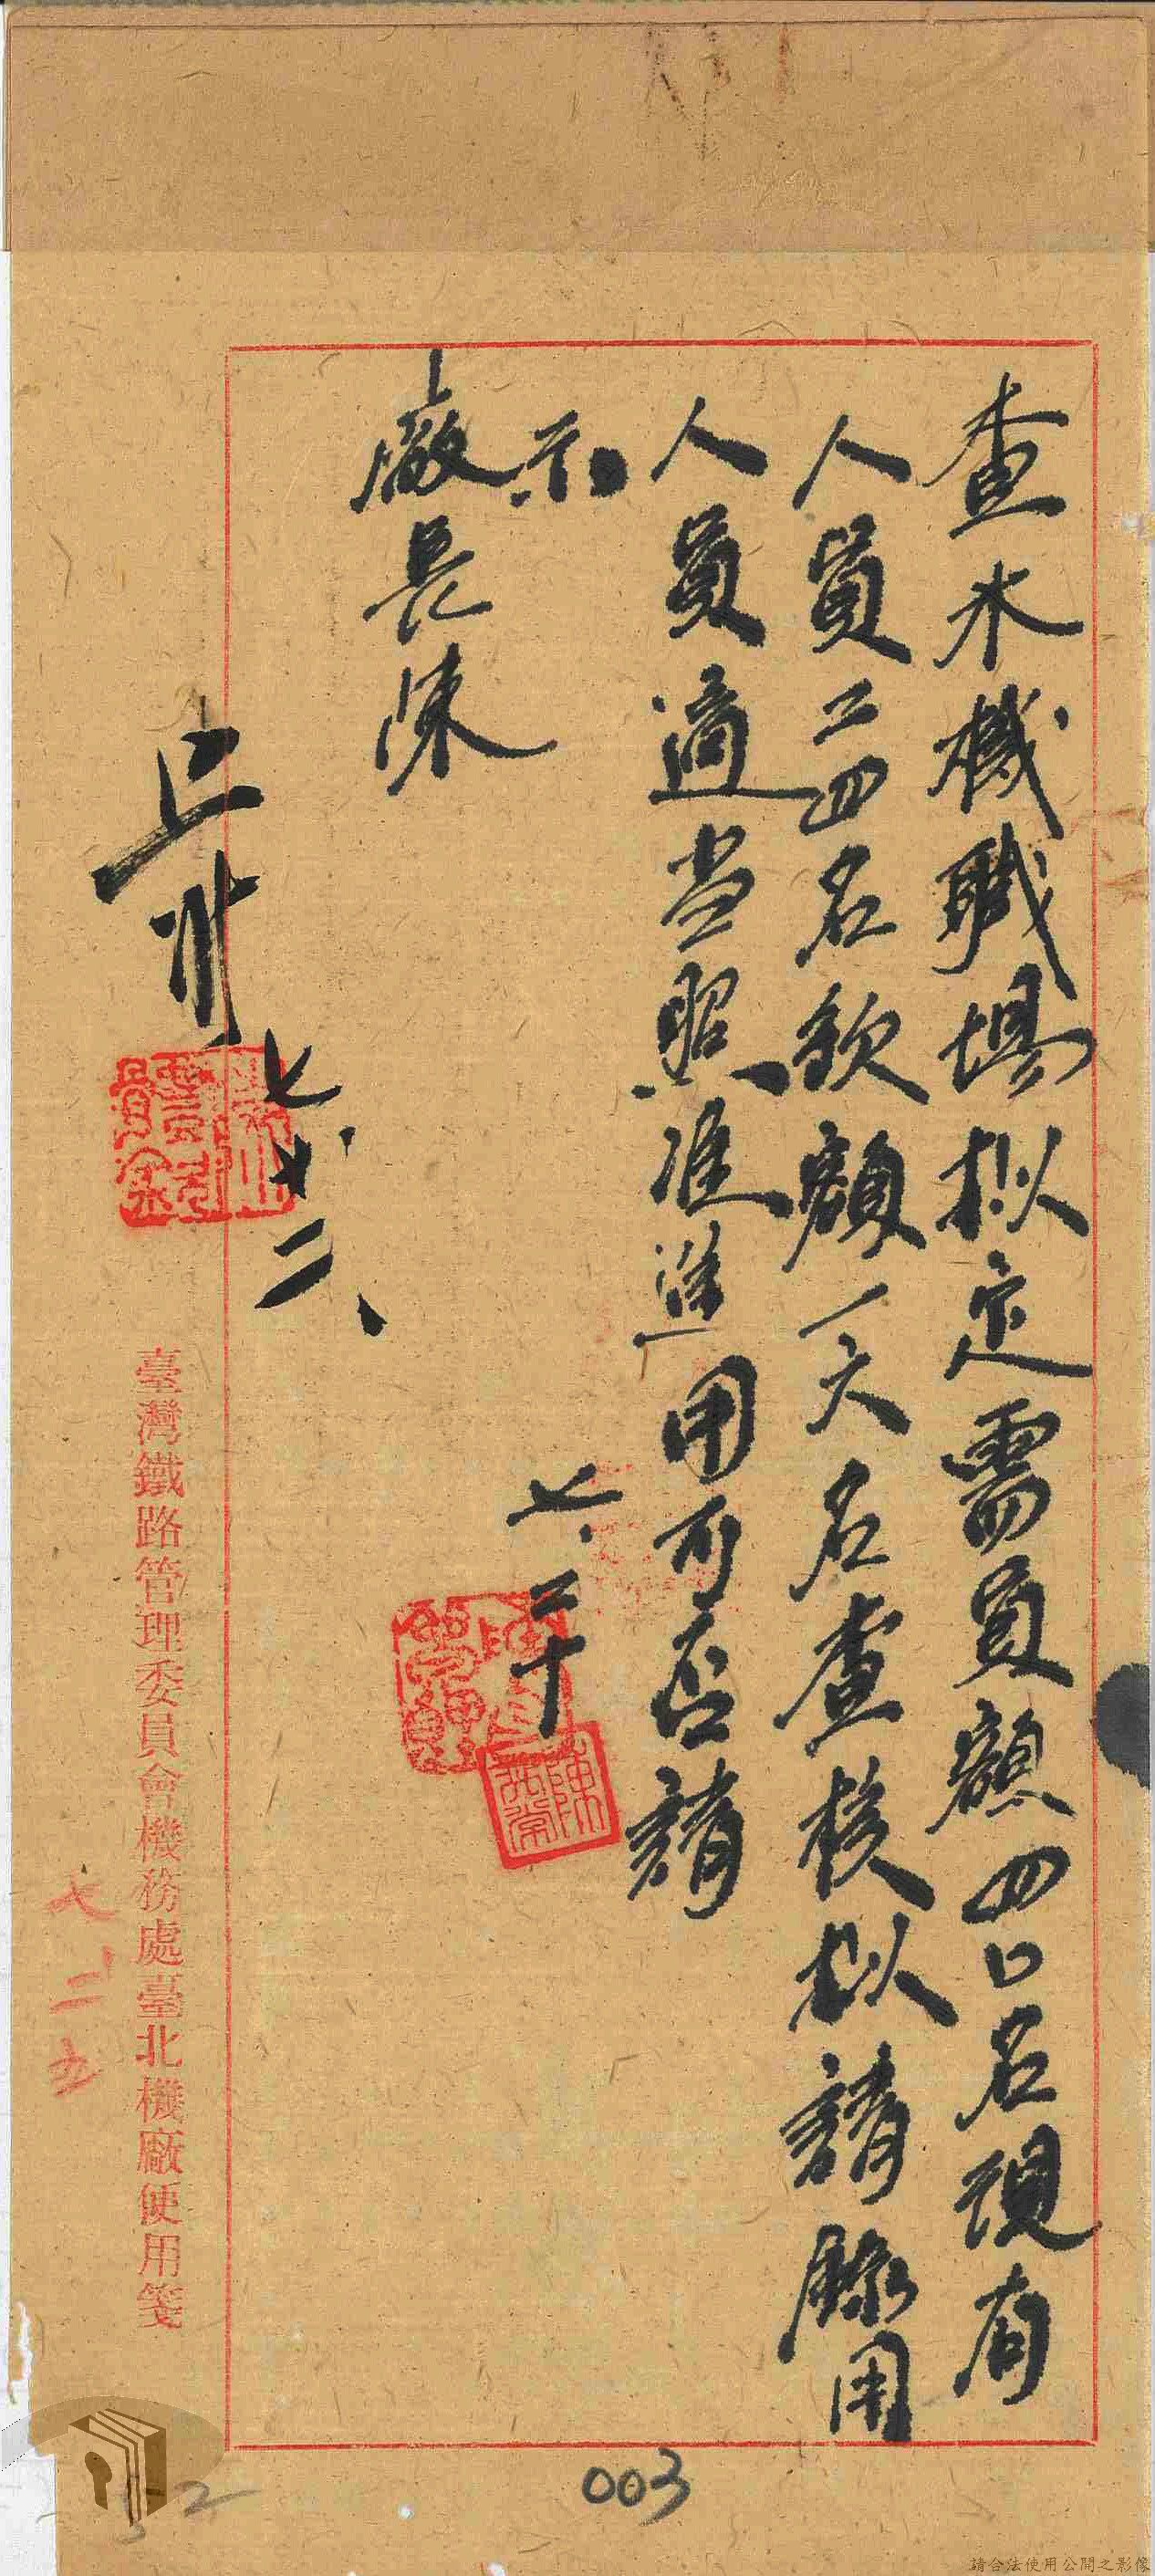 查木機職場拟定需員額四〇名現有
人員二四名欽額一六名查核拟請錄用
人員適当照准進用可否請
示
七、二十
廠長陳
七、廿二、
臺灣鐵路管理委員會機務處臺北機廠便用箋
七、二五
003
請合法使用公開之影像